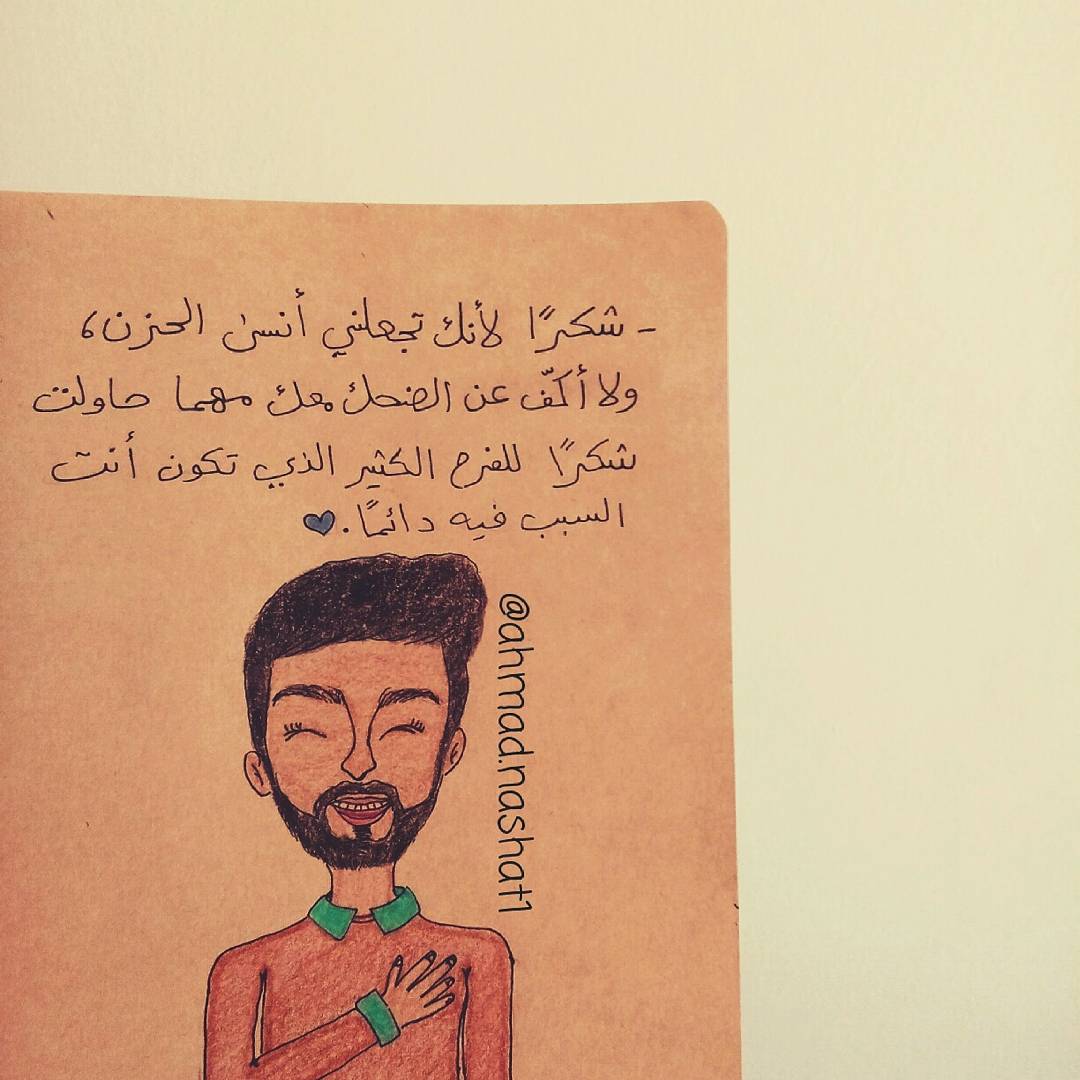 - شكرًا لأنك تجعلني أنسىٰ الحزن،
ولا أكفّ عن الضحك معك مهما حاولت
شكرًا للفرح الكثير الذي تكون أنت
السبب فيه دائمًا.💙
@ahmad.nashat1